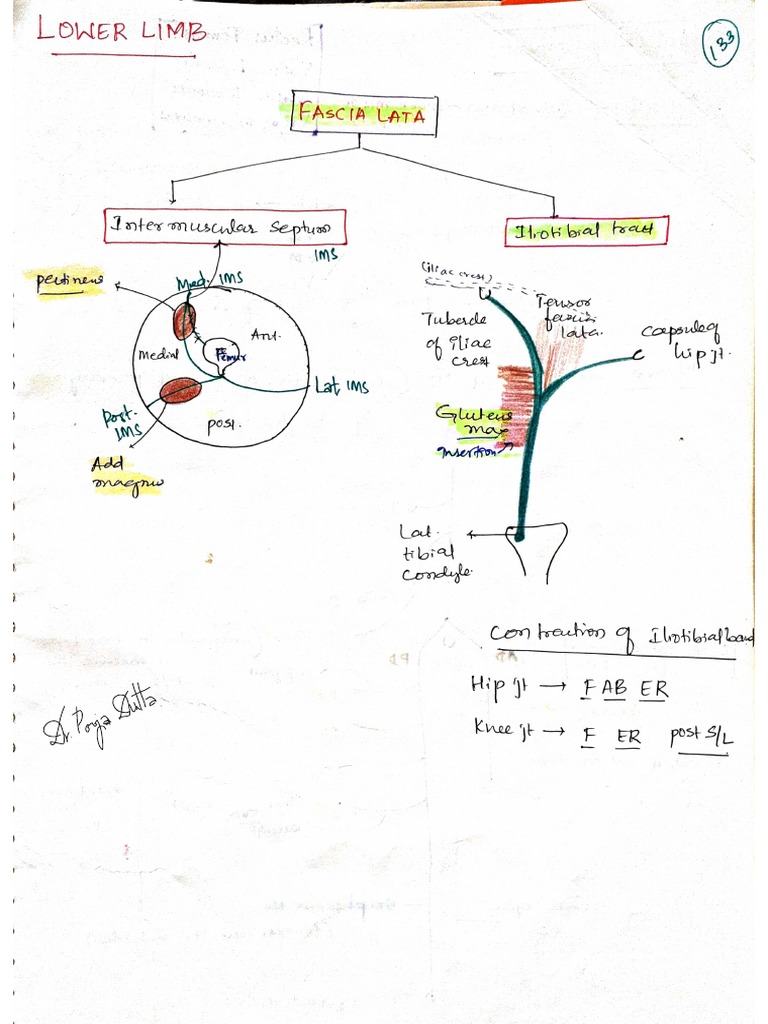 LOWER LIMB
133
FASCIA LATA
Intermuscular septum
IMS
Iliotibial tract
pectineus
Med. IMS
Ant.
Medial
Femur
Lat IMS
Post.
IMS
post.
Add
magnus
(iliac crest)
Tubercle
of iliac
crest
Tensor
fascia
lata.
Capsule of
hip jt.
Gluteus
max
insertion
Lat.
tibial
condyle
Contraction of Iliotibial band
Hip jt → F AB ER
Knee jt → F ER post S/L
Dr. Pooja Dutta